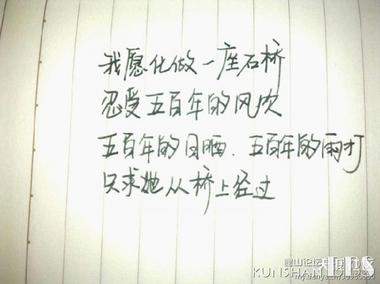 我愿化做一座石桥
忍受五百年的风吹
五百年的日晒、五百年的雨打
只求她从桥上经过
KUNSHAN